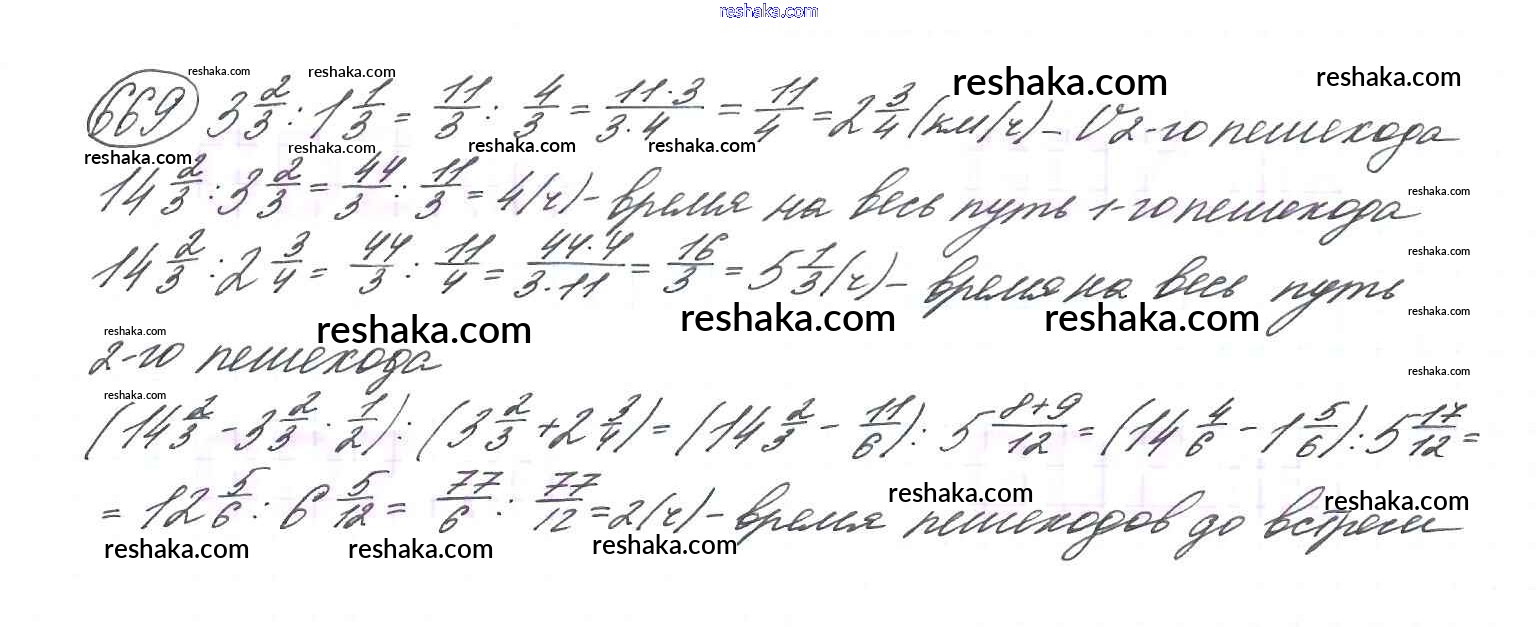 reshaka.com
reshaka.com reshaka.com reshaka.com reshaka.com
669 3 2/3 : 1 1/3 = 11/3 : 4/3 = 11·3/3·4 = 11/4 = 2 3/4 (км/ч) – V 2-го пешехода
reshaka.com reshaka.com reshaka.com reshaka.com
14 2/3 : 3 2/3 = 44/3 : 11/3 = 4 (ч) – время на весь путь 1-го пешехода
reshaka.com
14 2/3 : 2 3/4 = 44/3 : 11/4 = 44·4/3·11 = 16/3 = 5 1/3 (ч) – время на весь путь
reshaka.com
reshaka.com reshaka.com reshaka.com reshaka.com reshaka.com
2-го пешехода
reshaka.com
reshaka.com
(14 2/3 – 3 2/3 · 1/2) : (3 2/3 + 2 3/4) = (14 2/3 – 11/6) : 5 8+9/12 = (14 4/6 – 1 5/6) : 5 17/12 =
= 12 5/6 : 6 5/12 = 77/6 : 77/12 = 2 (ч) – время пешеходов до встречи
reshaka.com reshaka.com
reshaka.com reshaka.com reshaka.com